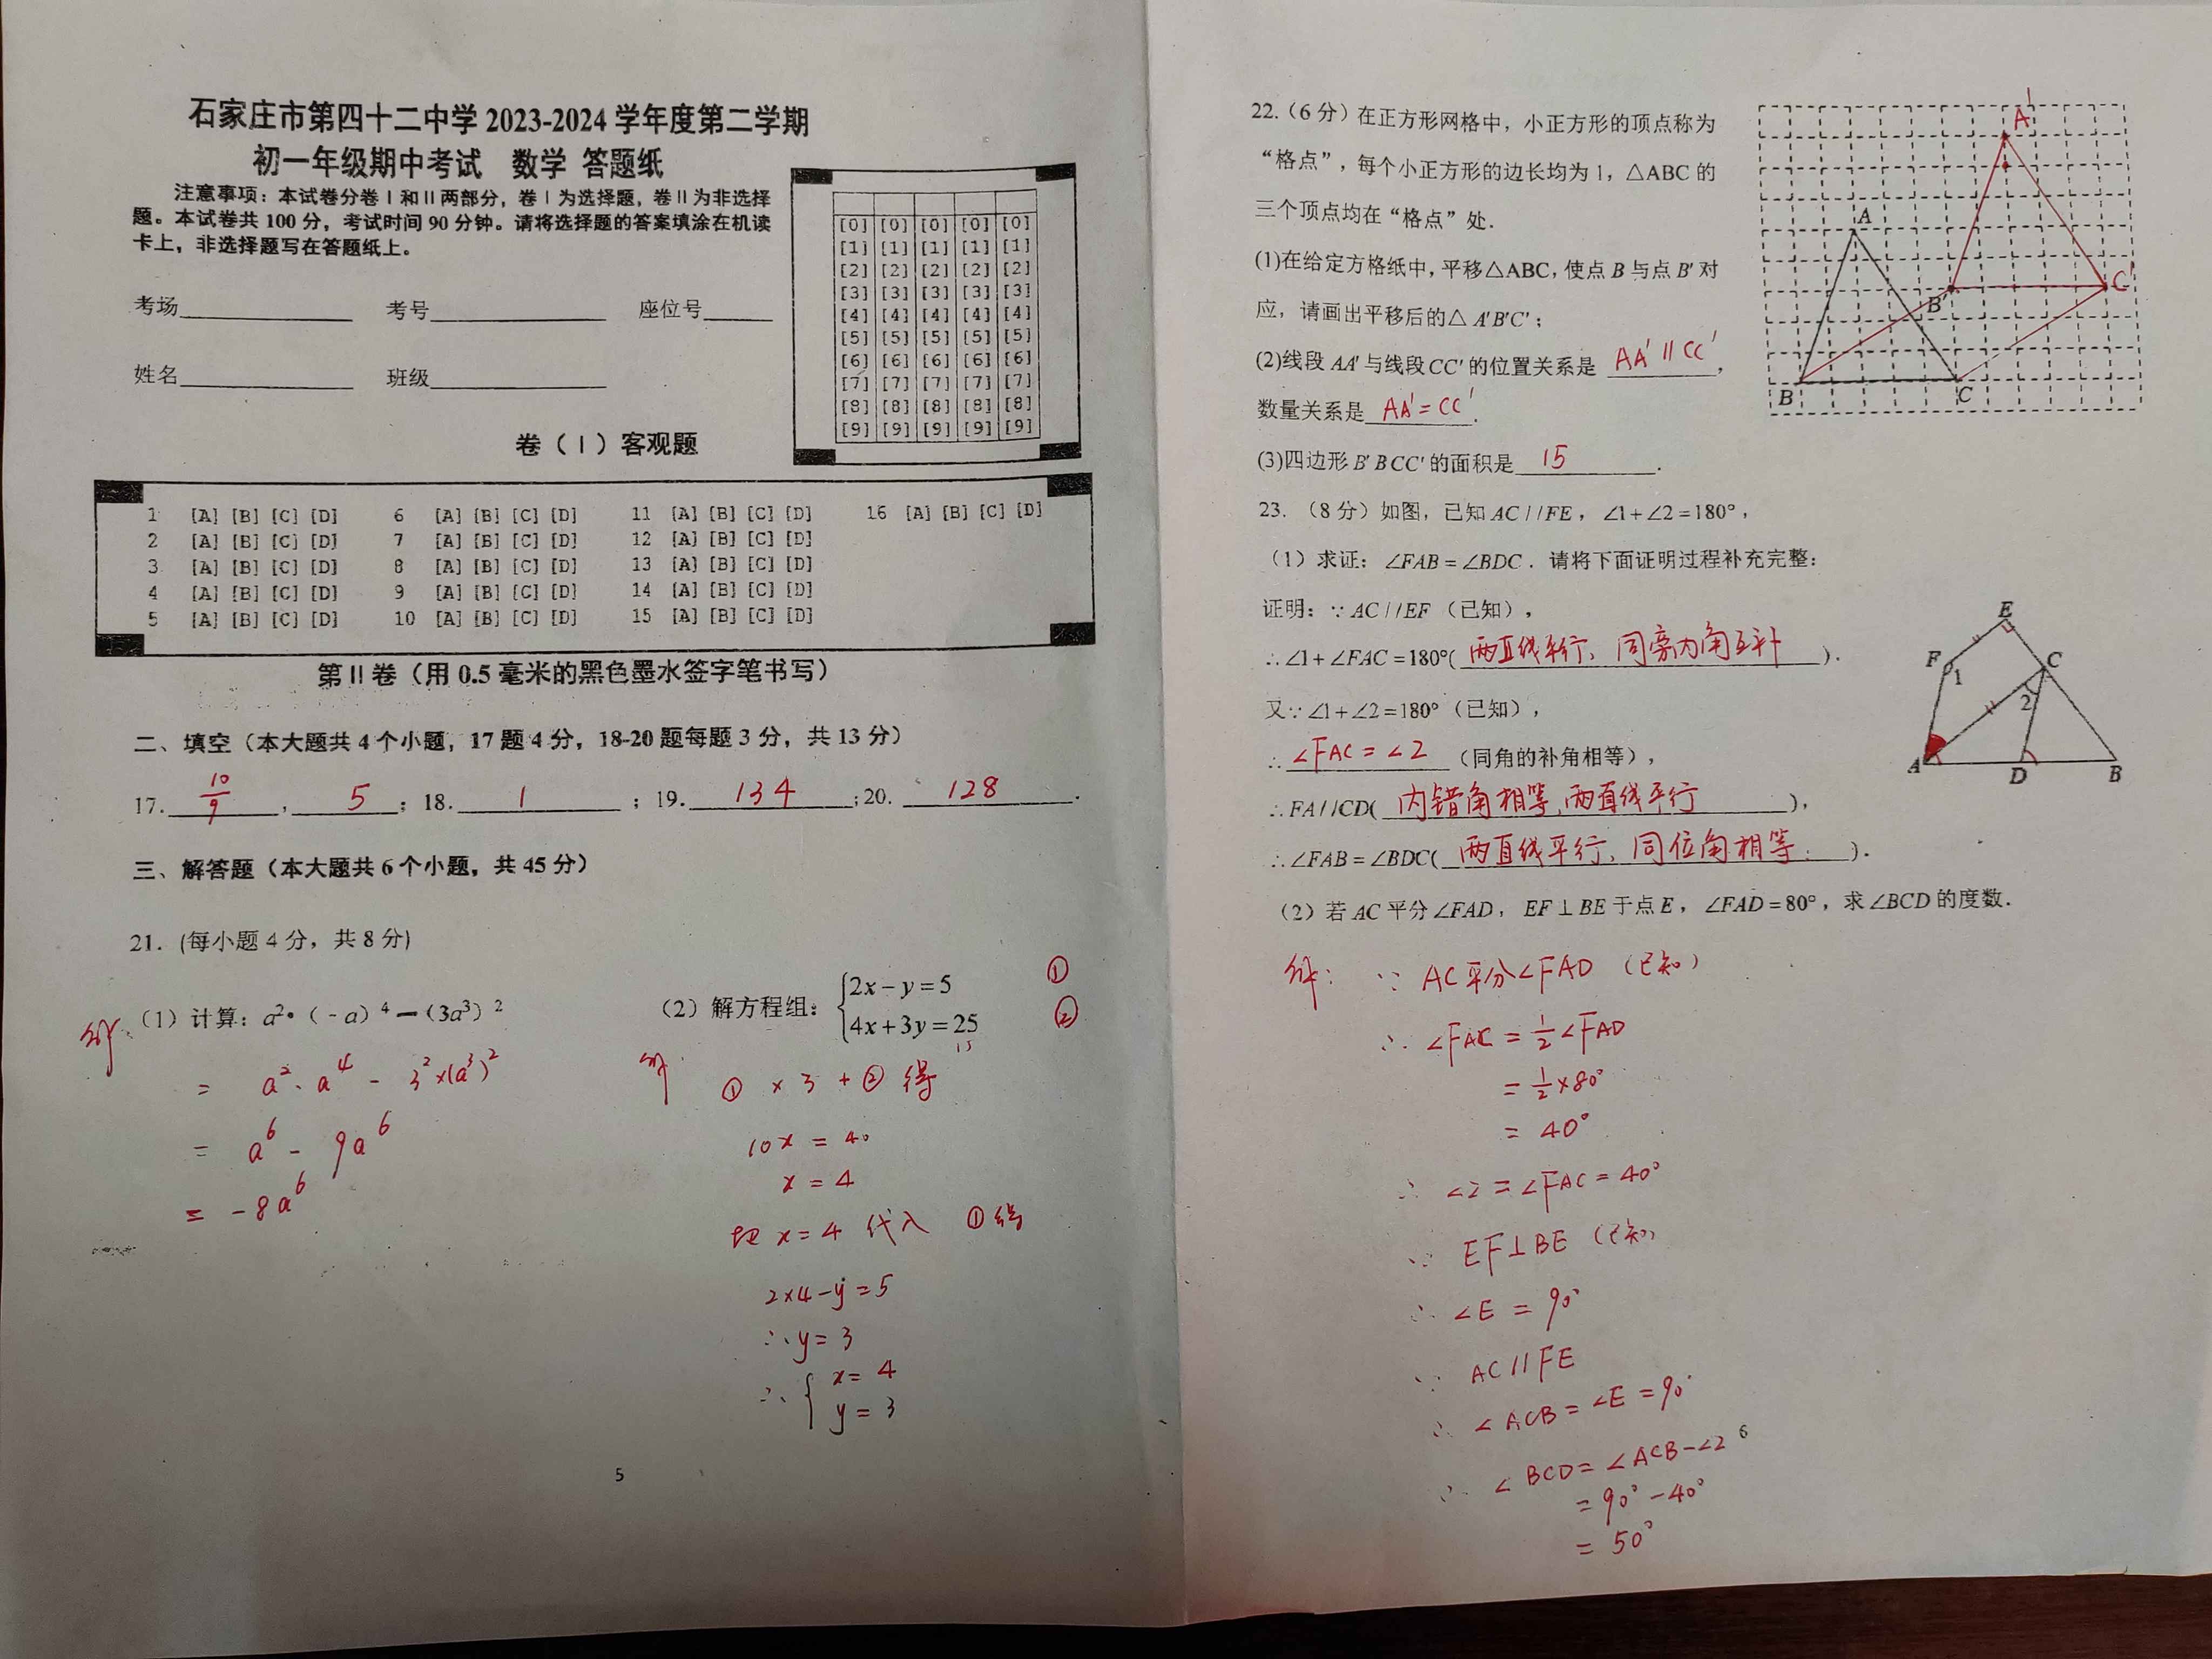 石家庄市第四十二中学 2023-2024 学年度第二学期
初一年级期中考试 数学 答题纸
注意事项：本试卷分卷Ⅰ和Ⅱ两部分，卷Ⅰ为选择题，卷Ⅱ为非选择
题。本试卷共 100 分，考试时间 90 分钟。请将选择题的答案填涂在机读
卡上，非选择题写在答题纸上。
考场 考号 座位号
姓名 班级
[0] [0] [0] [0] [0]
[1] [1] [1] [1] [1]
[2] [2] [2] [2] [2]
[3] [3] [3] [3] [3]
[4] [4] [4] [4] [4]
[5] [5] [5] [5] [5]
[6] [6] [6] [6] [6]
[7] [7] [7] [7] [7]
[8] [8] [8] [8] [8]
[9] [9] [9] [9] [9]
卷（Ⅰ）客观题
1 [A] [B] [C] [D] 6 [A] [B] [C] [D] 11 [A] [B] [C] [D] 16 [A] [B] [C] [D]
2 [A] [B] [C] [D] 7 [A] [B] [C] [D] 12 [A] [B] [C] [D]
3 [A] [B] [C] [D] 8 [A] [B] [C] [D] 13 [A] [B] [C] [D]
4 [A] [B] [C] [D] 9 [A] [B] [C] [D] 14 [A] [B] [C] [D]
5 [A] [B] [C] [D] 10 [A] [B] [C] [D] 15 [A] [B] [C] [D]
第Ⅱ卷（用 0.5 毫米的黑色墨水签字笔书写）
二、填空（本大题共 4 个小题，17 题 4 分，18-20 题每题 3 分，共 13 分）
17. 10/9 , 5 ; 18. 1 ; 19. 134 ; 20. 128 .
三、解答题（本大题共 6 个小题，共 45 分）
21. (每小题 4 分，共 8 分)
（1）计算：a²•（-a）⁴—（3a³）²
解：
= a²·a⁴ - 3²×(a³)²
= a⁶ - 9a⁶
= -8a⁶
（2）解方程组：{2x-y=5 ①
4x+3y=25 ②
15
解：
① ×3 + ② 得
10x = 40
x = 4
把 x=4 代入 ①得
2×4-y=5
∴ y=3
∴ { x=4
y=3
5
22.（6 分）在正方形网格中，小正方形的顶点称为
“格点”，每个小正方形的边长均为 1，△ABC 的
三个顶点均在“格点”处.
(1)在给定方格纸中，平移△ABC，使点 B 与点 B′对
应，请画出平移后的△ A′B′C′；
(2)线段 AA′与线段CC′的位置关系是 AA′∥CC′，
数量关系是 AA′=CC′.
(3)四边形 B′BCC′的面积是 15 .
A′
A
B′
C′
B
C
23. （8 分）如图，已知 AC//FE，∠1+∠2=180°，
（1）求证：∠FAB=∠BDC．请将下面证明过程补充完整：
证明：∵ AC//EF（已知），
∴∠1+∠FAC=180°( 两直线平行，同旁内角互补 ).
又∵∠1+∠2=180°（已知），
∴ ∠FAC=∠2 （同角的补角相等），
∴FA//CD( 内错角相等，两直线平行 )，
∴∠FAB=∠BDC( 两直线平行，同位角相等. ).
E
F
1
C
2
A
D
B
（2）若 AC 平分∠FAD，EF⊥BE 于点 E，∠FAD=80°，求∠BCD 的度数.
解： ∵ AC平分∠FAD（已知）
∴ ∠FAC = ½∠FAD
= ½×80°
= 40°
∴ ∠2=∠FAC=40°
∵ EF⊥BE（已知）
∴ ∠E = 90°
∵ AC∥FE
∴ ∠ACB=∠E=90°
∴ ∠BCD=∠ACB-∠2
= 90°-40°
= 50°
6